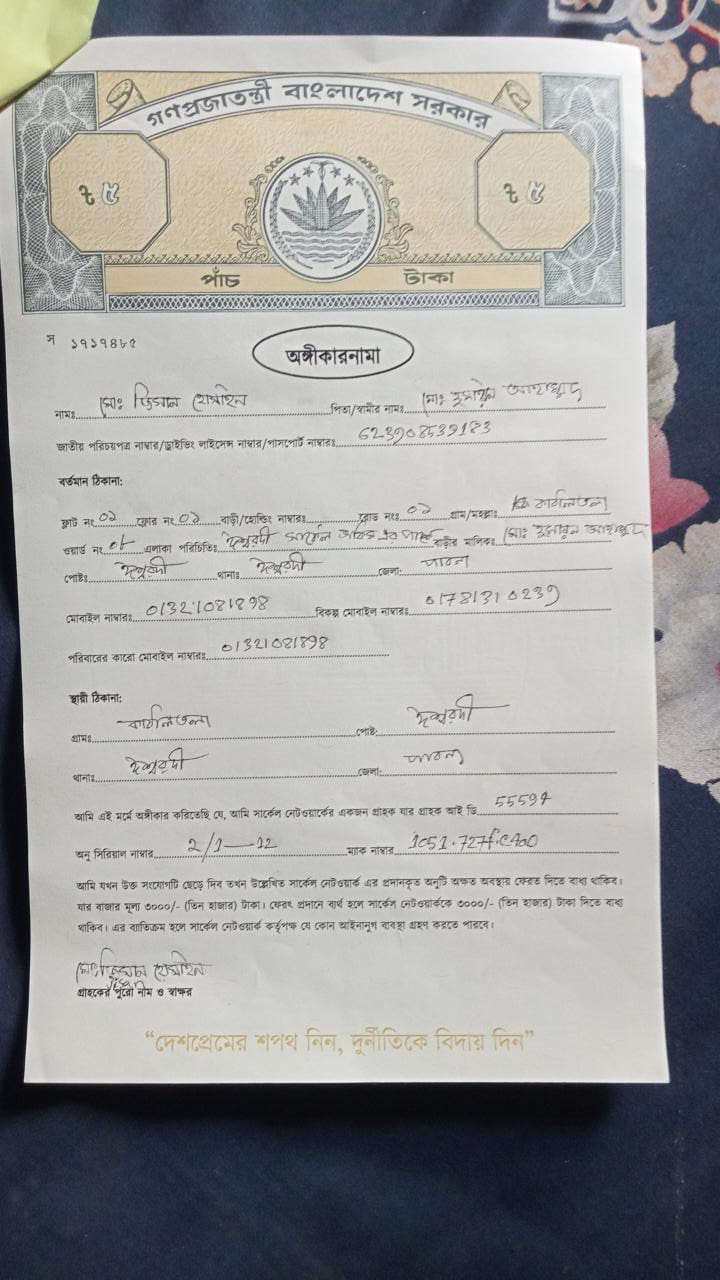 গণপ্রজাতন্ত্রী বাংলাদেশ সরকার
৳ ৫ ৳ ৫
পাঁচ টাকা
স ১৭১৭৪৮৫
অঙ্গীকারনামা
নামঃ মোঃ হোসাইন পিতা/স্বামীর নামঃ মোঃ আহাম্মদ
জাতীয় পরিচয়পত্র নাম্বার/ড্রাইভিং লাইসেন্স নাম্বার/পাসপোর্ট নাম্বারঃ 623908539183
বর্তমান ঠিকানা:
ফ্লাট নং ০১ ফ্লোর নং ০১ বাড়ী/হোল্ডিং নাম্বারঃ রোড নংঃ ০১ গ্রাম/মহল্লাঃ
ওয়ার্ড নং ০৮ এলাকা পরিচিতিঃ ঈশ্বরদী সার্কেল অফিস এর পার্শ্বে বাড়ীর মালিকঃ মোঃ আহাম্মদ
পোষ্টঃ ঈশ্বরদী থানাঃ ঈশ্বরদী জেলা: পাবনা
মোবাইল নাম্বারঃ 01321081898 বিকল্প মোবাইল নাম্বারঃ 01781310239
পরিবারের কারো মোবাইল নাম্বারঃ 01321081898
স্থায়ী ঠিকানা:
গ্রামঃ পোষ্ট: ঈশ্বরদী
থানাঃ ঈশ্বরদী জেলা: পাবনা
আমি এই মর্মে অঙ্গীকার করিতেছি যে, আমি সার্কেল নেটওয়ার্কের একজন গ্রাহক যার গ্রাহক আই ডি 55594
অনু সিরিয়াল নাম্বার 2/1—12 ম্যাক নাম্বার
আমি যখন উক্ত সংযোগটি ছেড়ে দিব তখন উল্লেখিত সার্কেল নেটওয়ার্ক এর প্রদানকৃত অনুটি অক্ষত অবস্থায় ফেরত দিতে বাধ্য থাকিব।
যার বাজার মূল্য ৩০০০/- (তিন হাজার) টাকা। ফেরৎ প্রদানে ব্যর্থ হলে সার্কেল নেটওয়ার্ককে ৩০০০/- (তিন হাজার) টাকা দিতে বাধ্য
থাকিব। এর ব্যতিক্রম হলে সার্কেল নেটওয়ার্ক কর্তৃপক্ষ যে কোন আইনানুগ ব্যবস্থা গ্রহণ করতে পারবে।
মোঃ হোসাইন
গ্রাহকের পুরো নাম ও স্বাক্ষর
“দেশপ্রেমের শপথ নিন, দুর্নীতিকে বিদায় দিন”